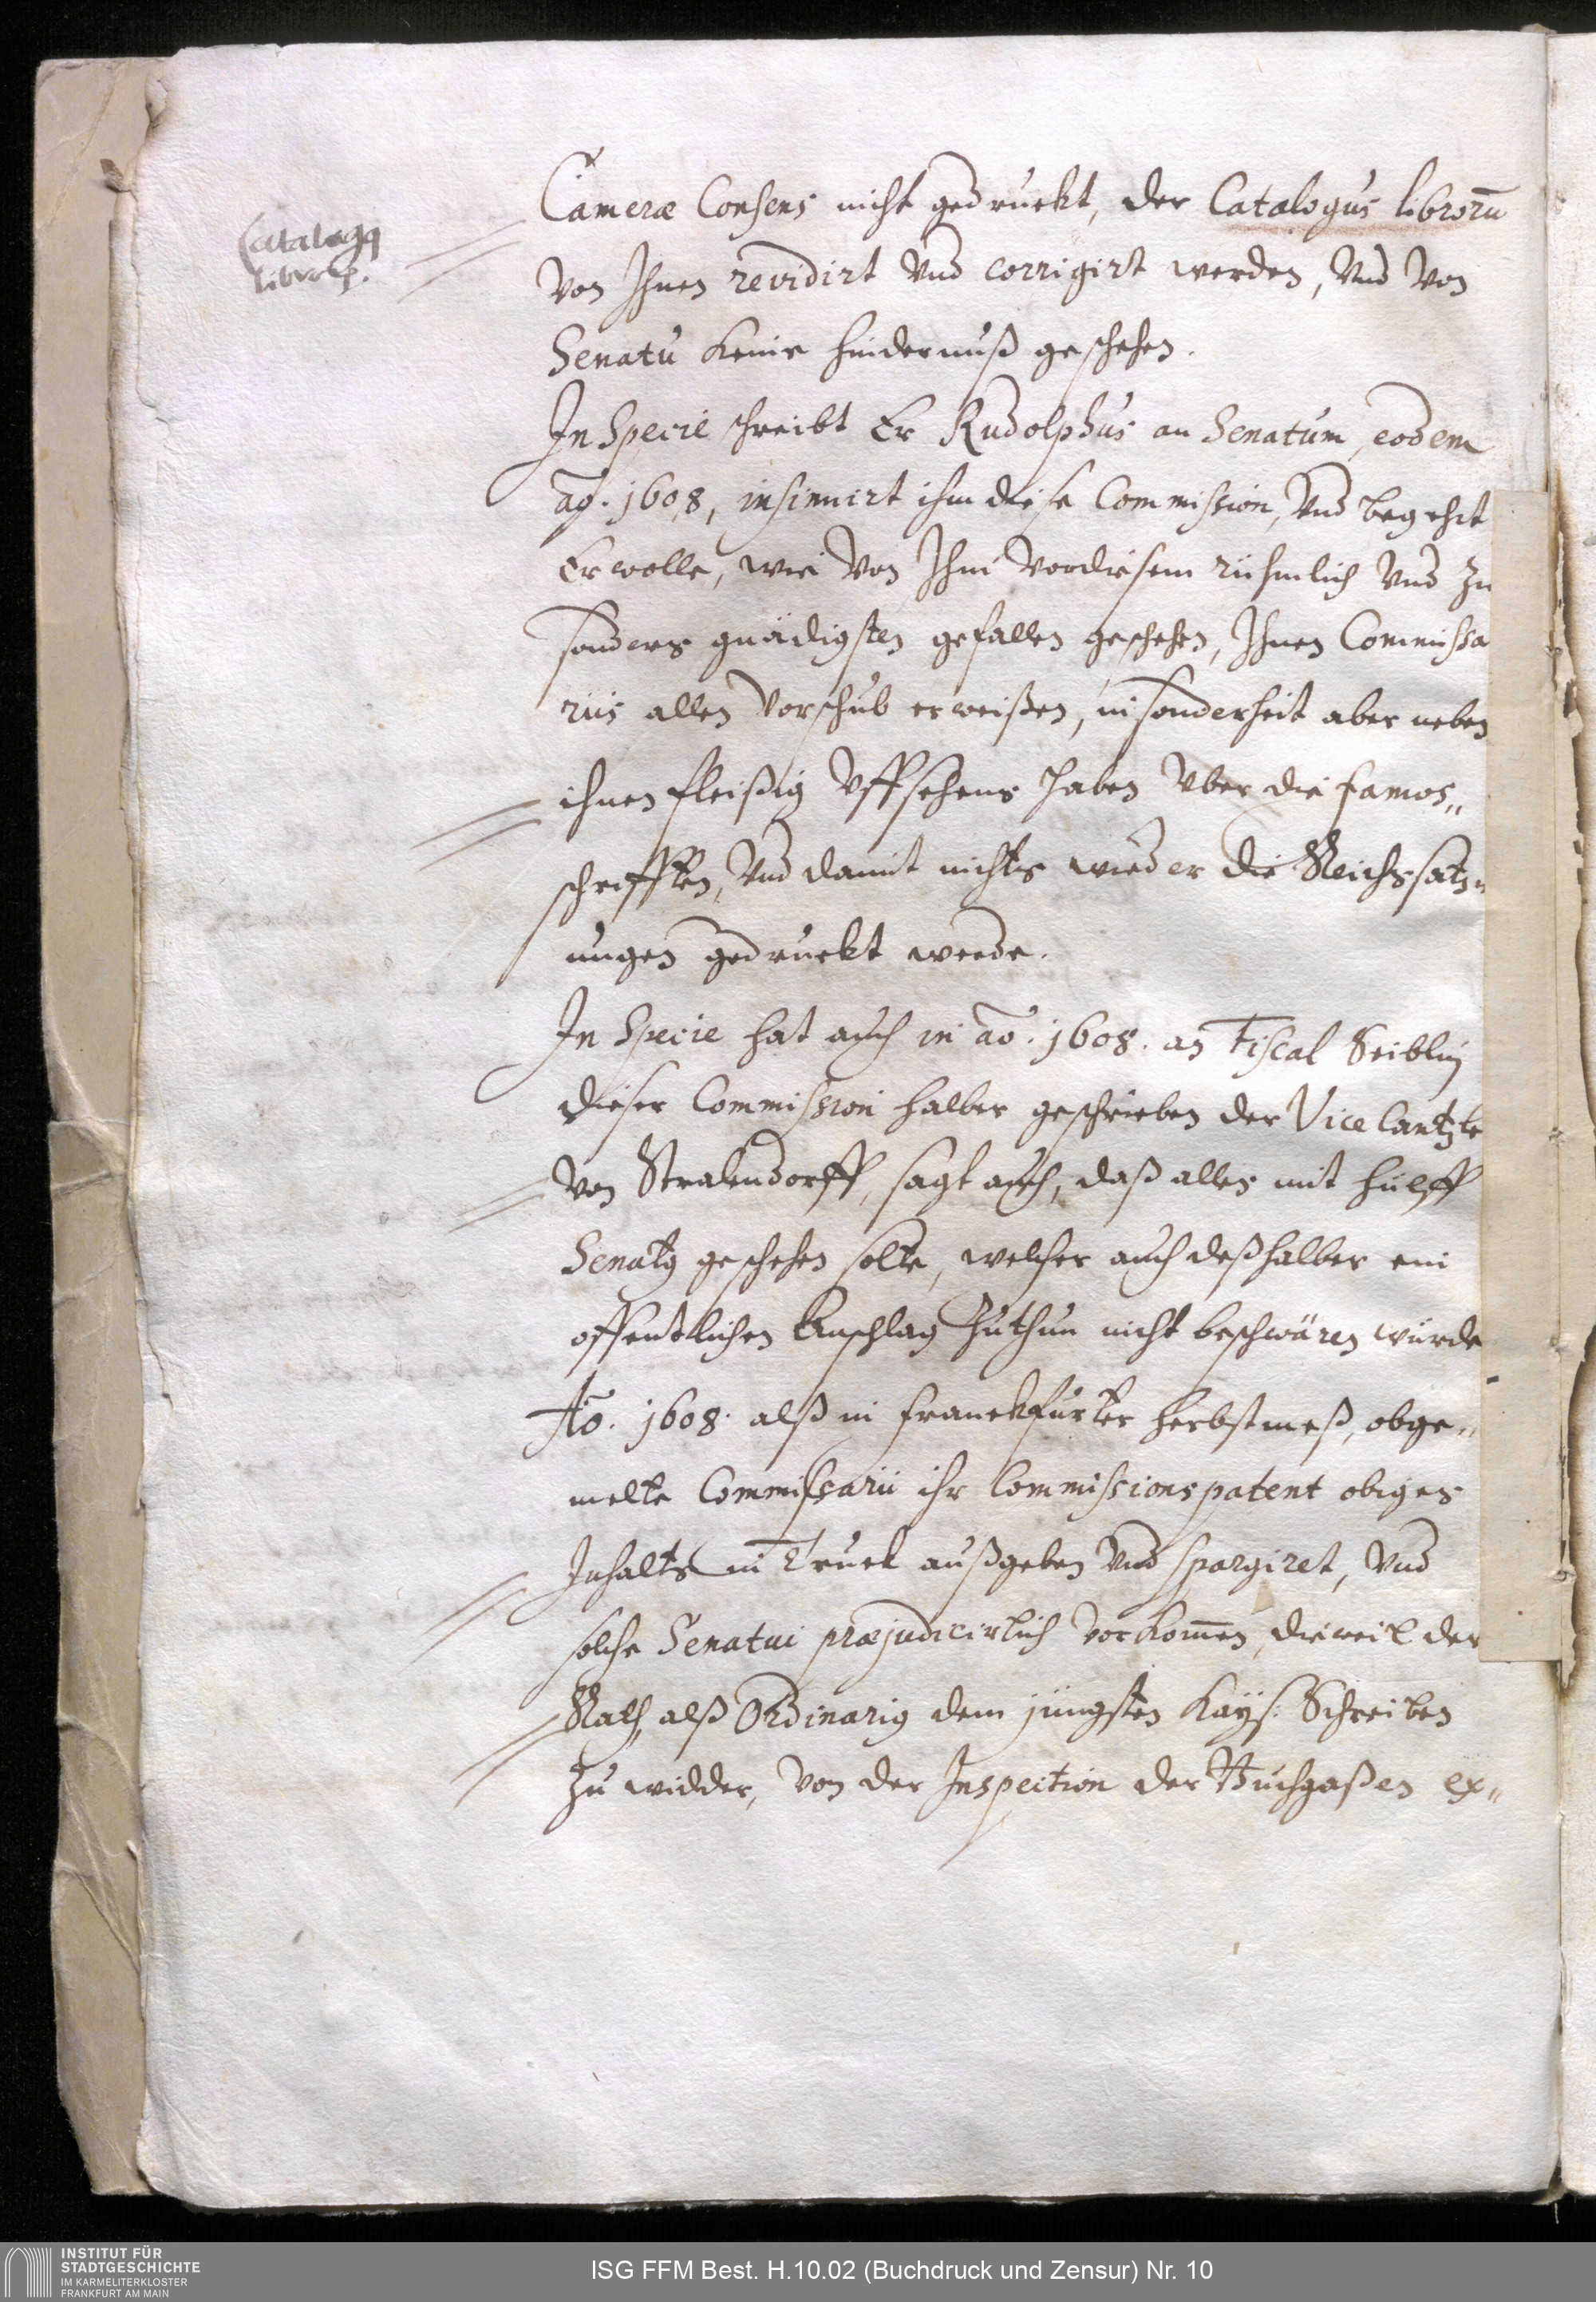 Catalogq
librorꝝ.
Cameræ Consens nicht gedruckt, der Catalogus librorū
Von Ihnen revidirt Vnd corrigirt werden, Vnd Von
Senatu keine hindernuß geschehen.
In Specie schreibt Er Rudolphus an Senatum, eodem
aō. 1608, insinuirt ihm diese Commission, Vnd begehrt
Er wolle, wie Von Ihm vordiesem rühmlich Vnd zu
sonders gnädigsten gefallen geschehen, Ihnen Commissa
riis allen Vorschub erweißen, insonderheit aber neben
ihnen fleißig Vffsehens haben Vber die famos„
schrifften, Vnd damit nichts wieder die Reichssatz„
ungen gedruckt werde.
In Specie hat auch in aō. 1608. an Fiscal Seiblin
dieser Commission halber geschrieben der Vice Cantzle
Von Stralendorff, sagt auch, daß alles mit hülff
Senatq geschehen solte, welcher auch deßhalber ein
offentlichen Anschlag zuthun nicht beschwären würde
Aō. 1608. alß in franckfurter herbstmeß, obge„
melte Commissarii ihr Commissionspatent obiges
Inhalts in Truck außgeben Vnd spargiret, Vnd
solche Senatui præjudicirlich Vorkom̄en, dieweil der
Rath alß Ordinariq dem jüngsten Kayß: Schreiben
Zu widder, Von der Inspection der Buchgaßen ex„
INSTITUT FÜR
STADTGESCHICHTE
IM KARMELITERKLOSTER
FRANKFURT AM MAIN
ISG FFM Best. H.10.02 (Buchdruck und Zensur) Nr. 10